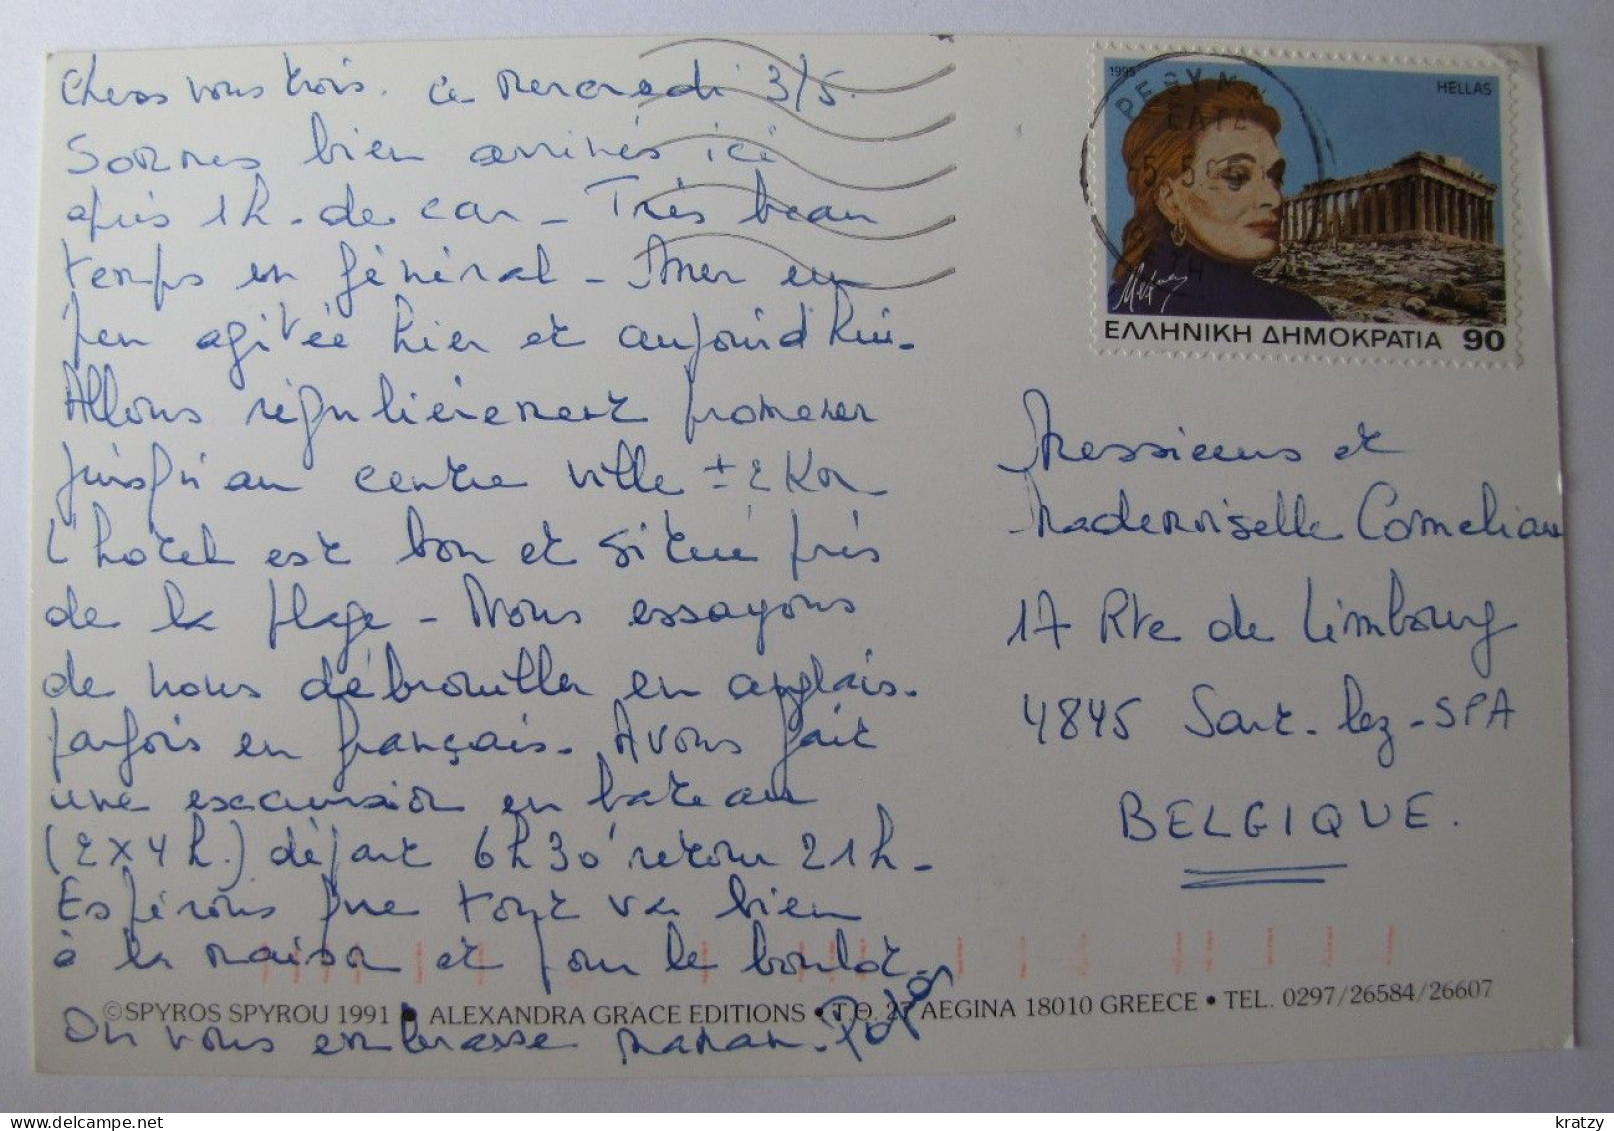 Chers vous trois. ce Mercredi 3/5.
Sommes bien arrivés ici
après 1h. de car - Très beau
temps en général - Mer un
peu agitée hier et aujourd'hui.
Allons régulièrement promener
jusqu'au centre ville ± 2 Km
L'hotel est bon et situé près
de la plage - Nous essayons
de nous débrouiller en anglais.
parfois en français. Avons fait
une excursion en bateau
(2 x 4 h.) départ 6h30' retour 21h -
Espérons que tout va bien
à la maison et pour le boulot -
©SPYROS SPYROU 1991 • ALEXANDRA GRACE EDITIONS • T.O. 27 AEGINA 18010 GREECE • TEL. 0297/26584/26607
On vous embrasse maman - Papa
1995
HELLAS
ΕΛΛΗΝΙΚΗ ΔΗΜΟΚΡΑΤΙΑ 90
Messieurs et
Mademoiselle
17 Rte de Limbourg
4845 Sart-lez-SPA
BELGIQUE.
kratzy